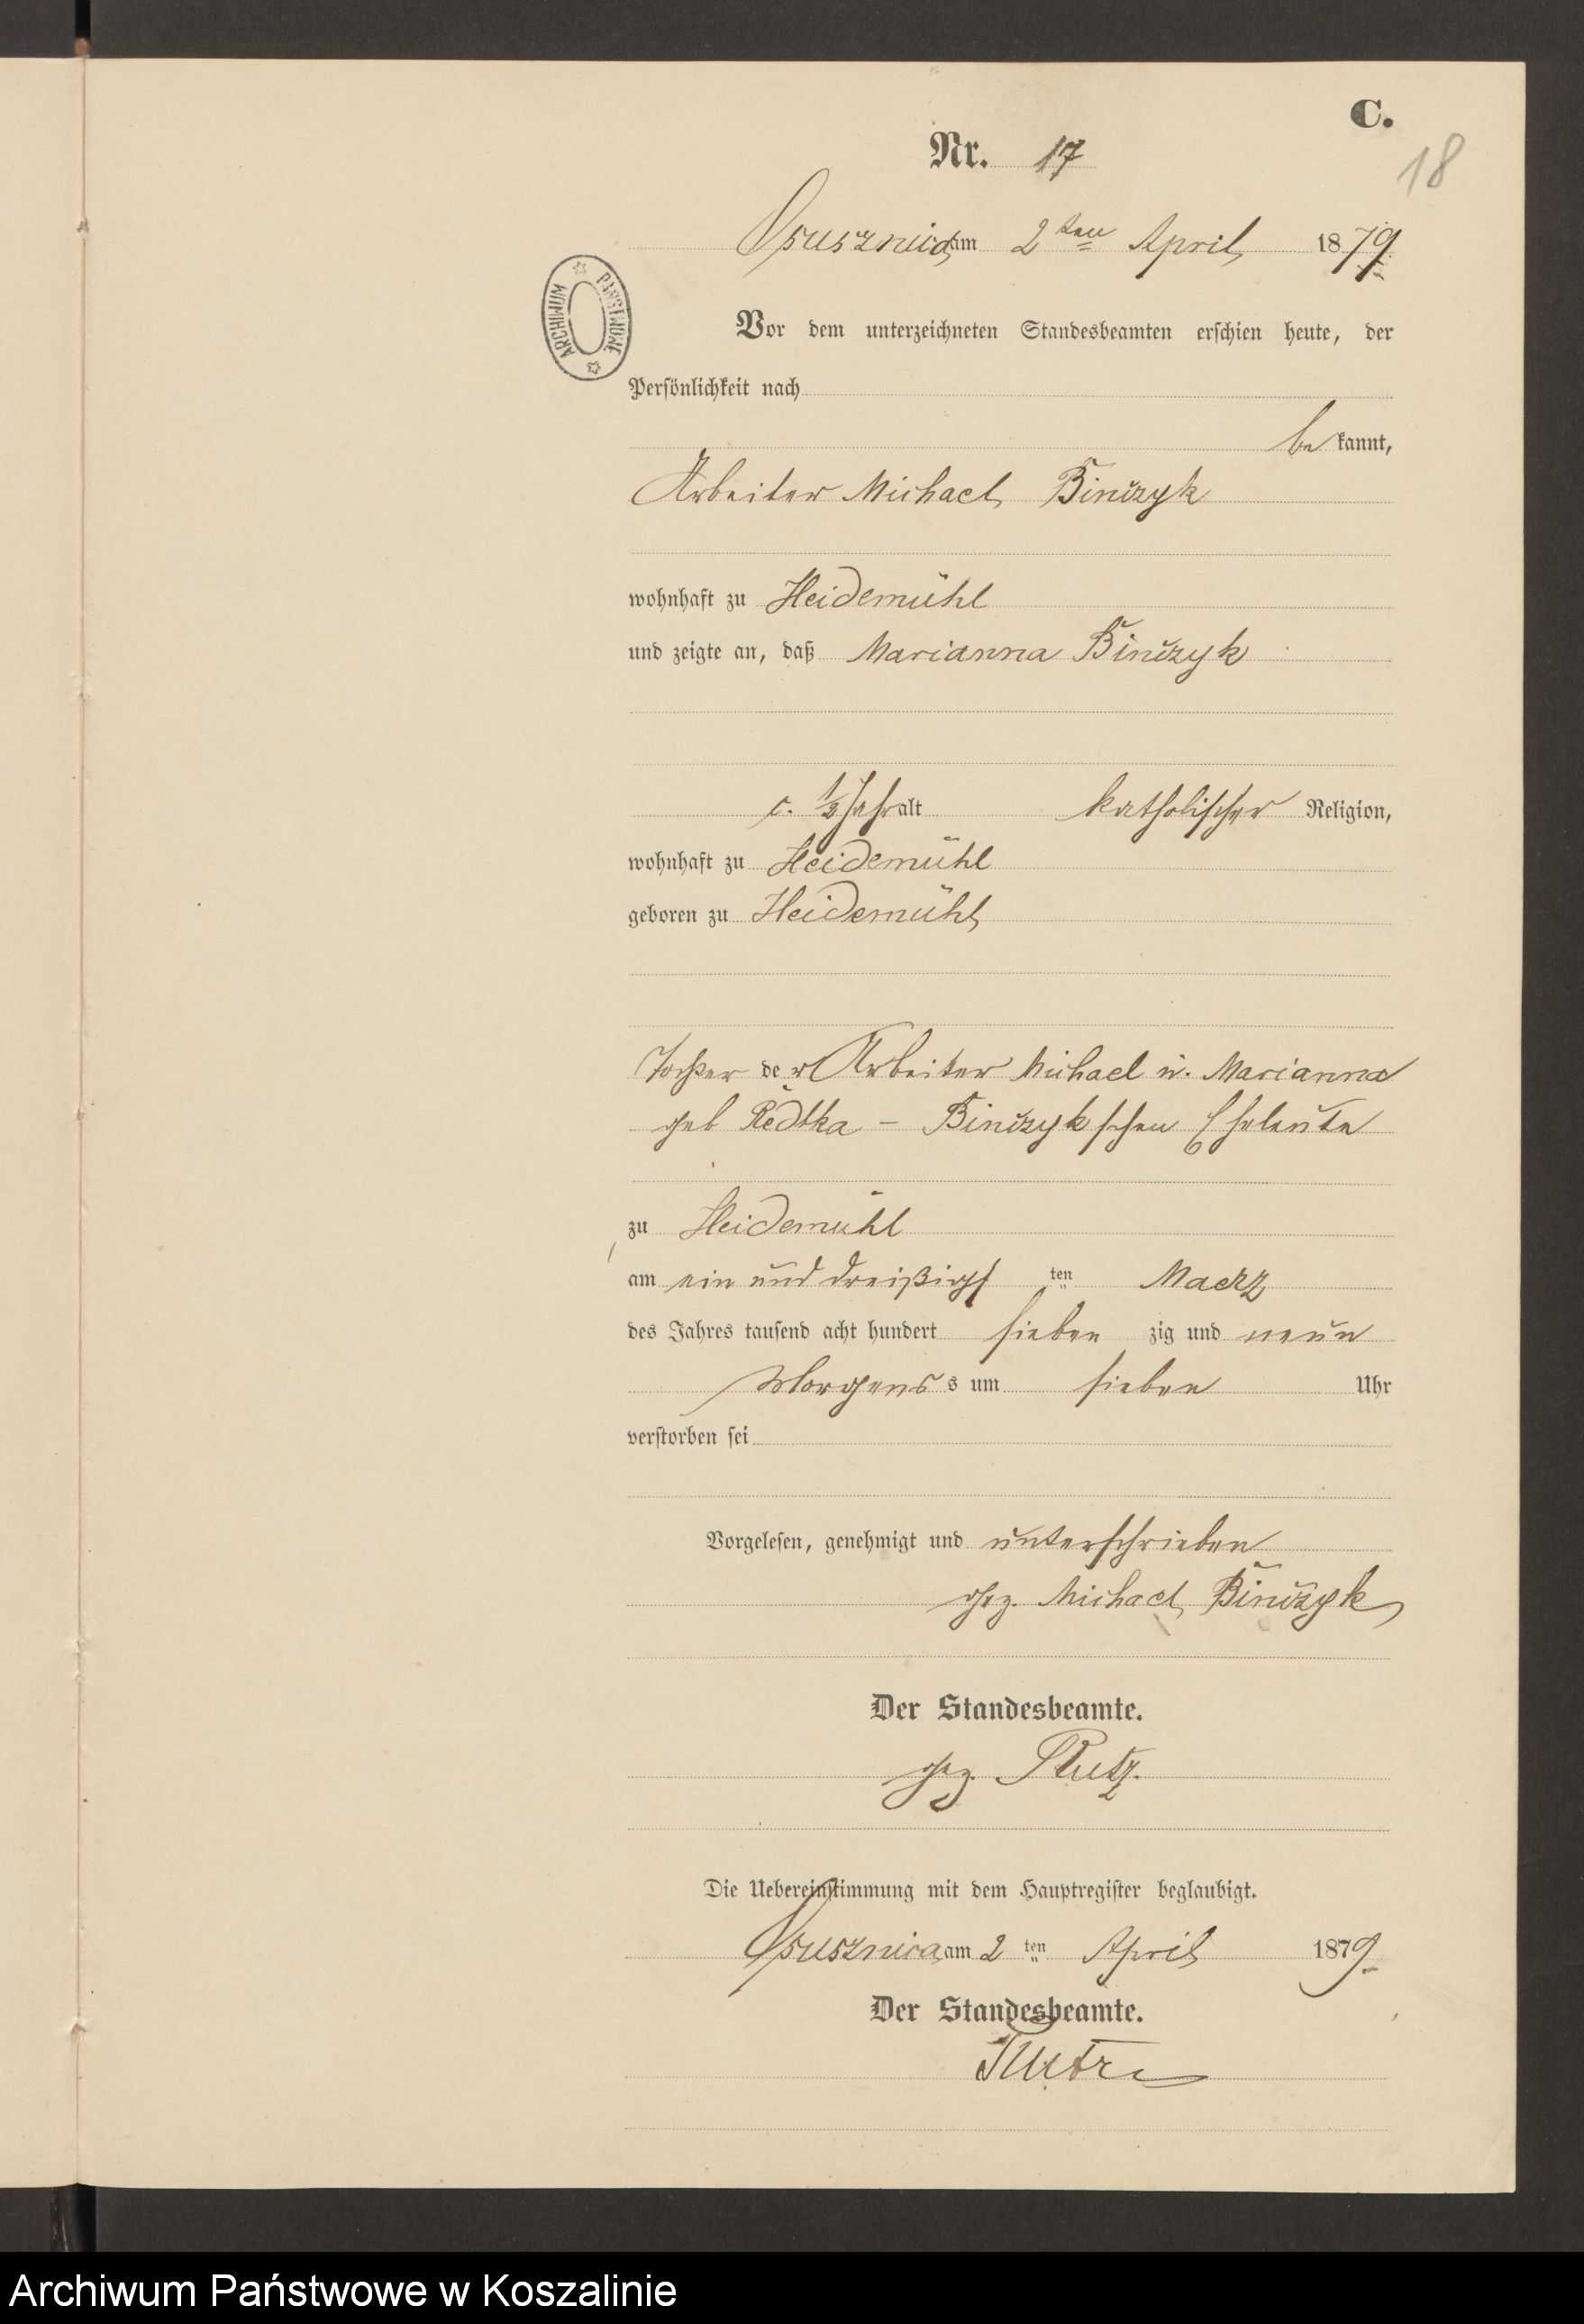 C.
Nr. 17
18
Osusznica am 2ten April 1879
ARCHIWUM PAŃSTWOWE
Vor dem unterzeichneten Standesbeamten erschien heute, der
Persönlichkeit nach
be kannt,
Arbeiter Michael Binczyk
wohnhaft zu Heidemühl
und zeigte an, daß Marianna Binczyk
c. 1/2 Jahr alt katholischer Religion,
wohnhaft zu Heidemühl
geboren zu Heidemühl
Tochter der Arbeiter Michael u. Marianna
geb Redtka - Binczykschen Eheleute
zu Heidemühl
am ein und dreißigst ten Maerz
des Jahres tausend acht hundert sieben zig und neun
Morgens s um sieben Uhr
verstorben sei
Vorgelesen, genehmigt und unterschrieben
gez. Michael Binczyk
Der Standesbeamte.
gez.
Die Uebereinstimmung mit dem Hauptregister beglaubigt.
Osusznica am 2 ten April 1879
Der Standesbeamte.
Archiwum Państwowe w Koszalinie